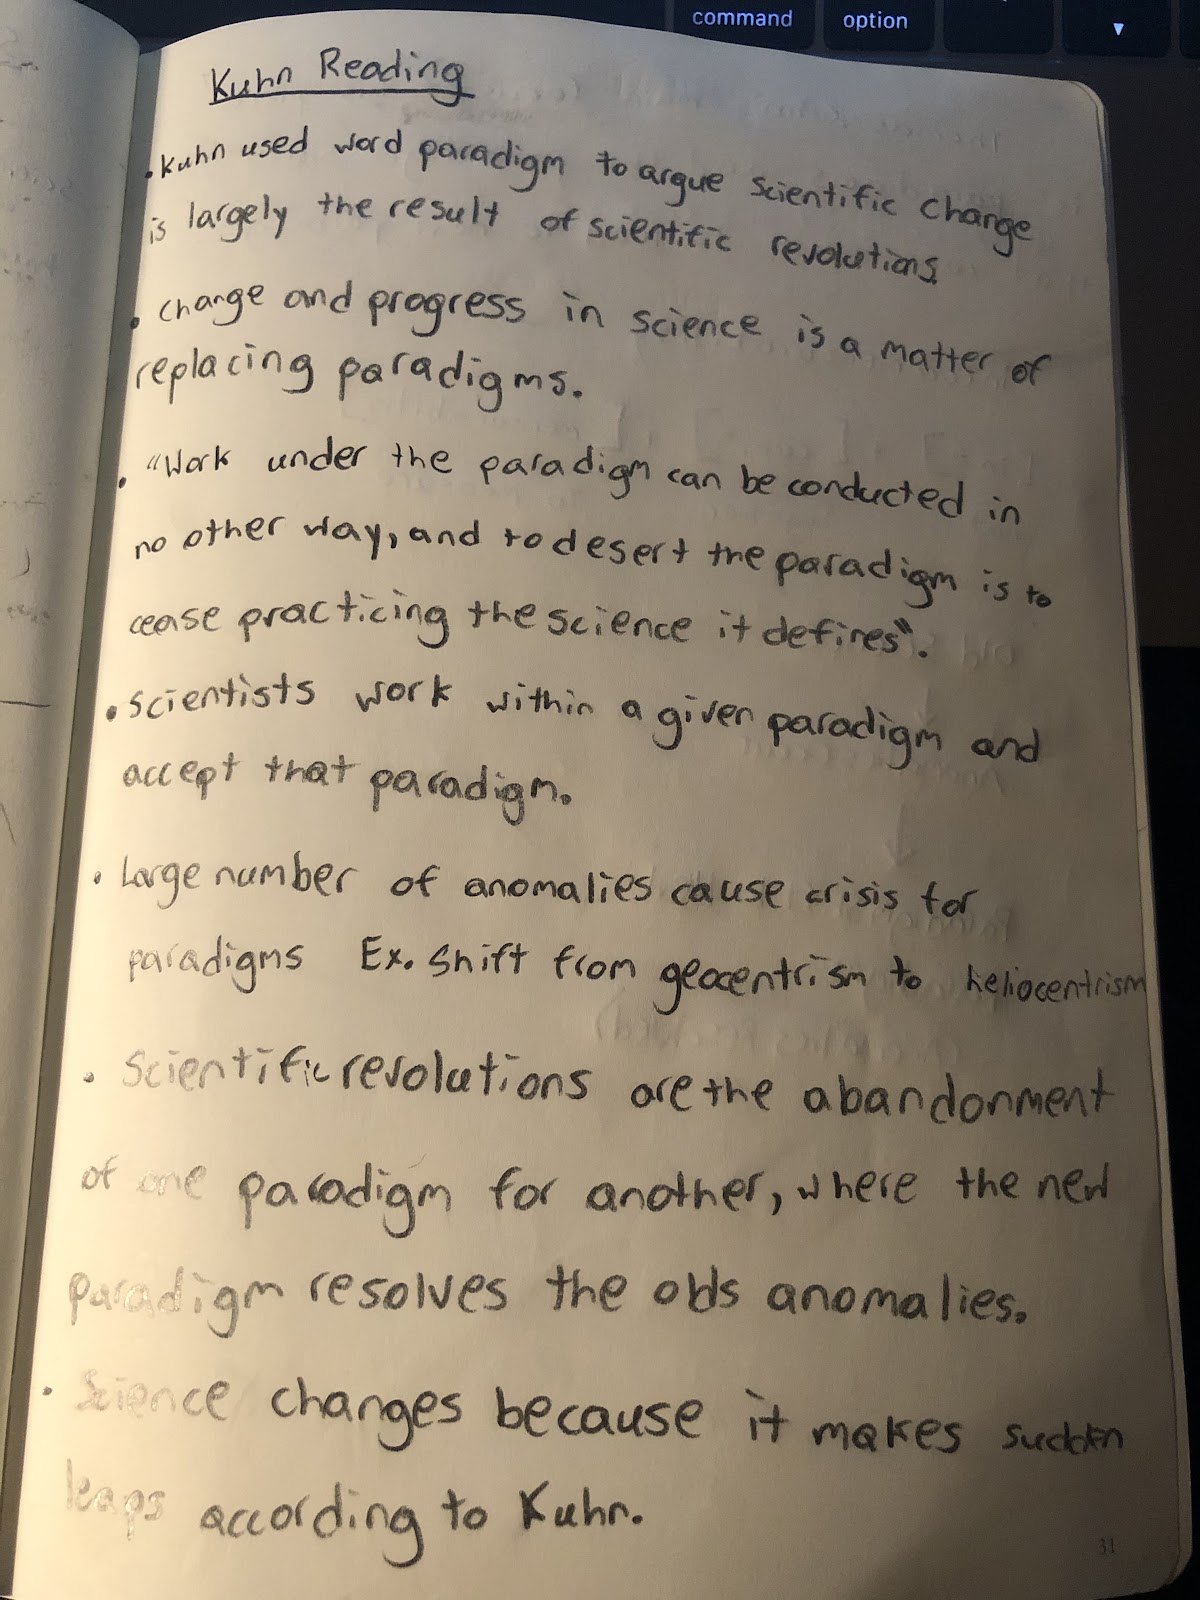 command option
Kuhn Reading
• Kuhn used word paradigm to argue scientific change
is largely the result of scientific revolutions.
• Change and progress in science is a matter of
replacing paradigms.
• "Work under the paradigm can be conducted in
no other way, and to desert the paradigm is to
cease practicing the science it defines".
• Scientists work within a given paradigm and
accept that paradigm.
• Large number of anomalies cause crisis for
paradigms Ex. Shift from geocentrism to heliocentrism
• Scientific revolutions are the abandonment
of one paradigm for another, where the new
paradigm resolves the olds anomalies.
• Science changes because it makes sudden
leaps according to Kuhn.
31